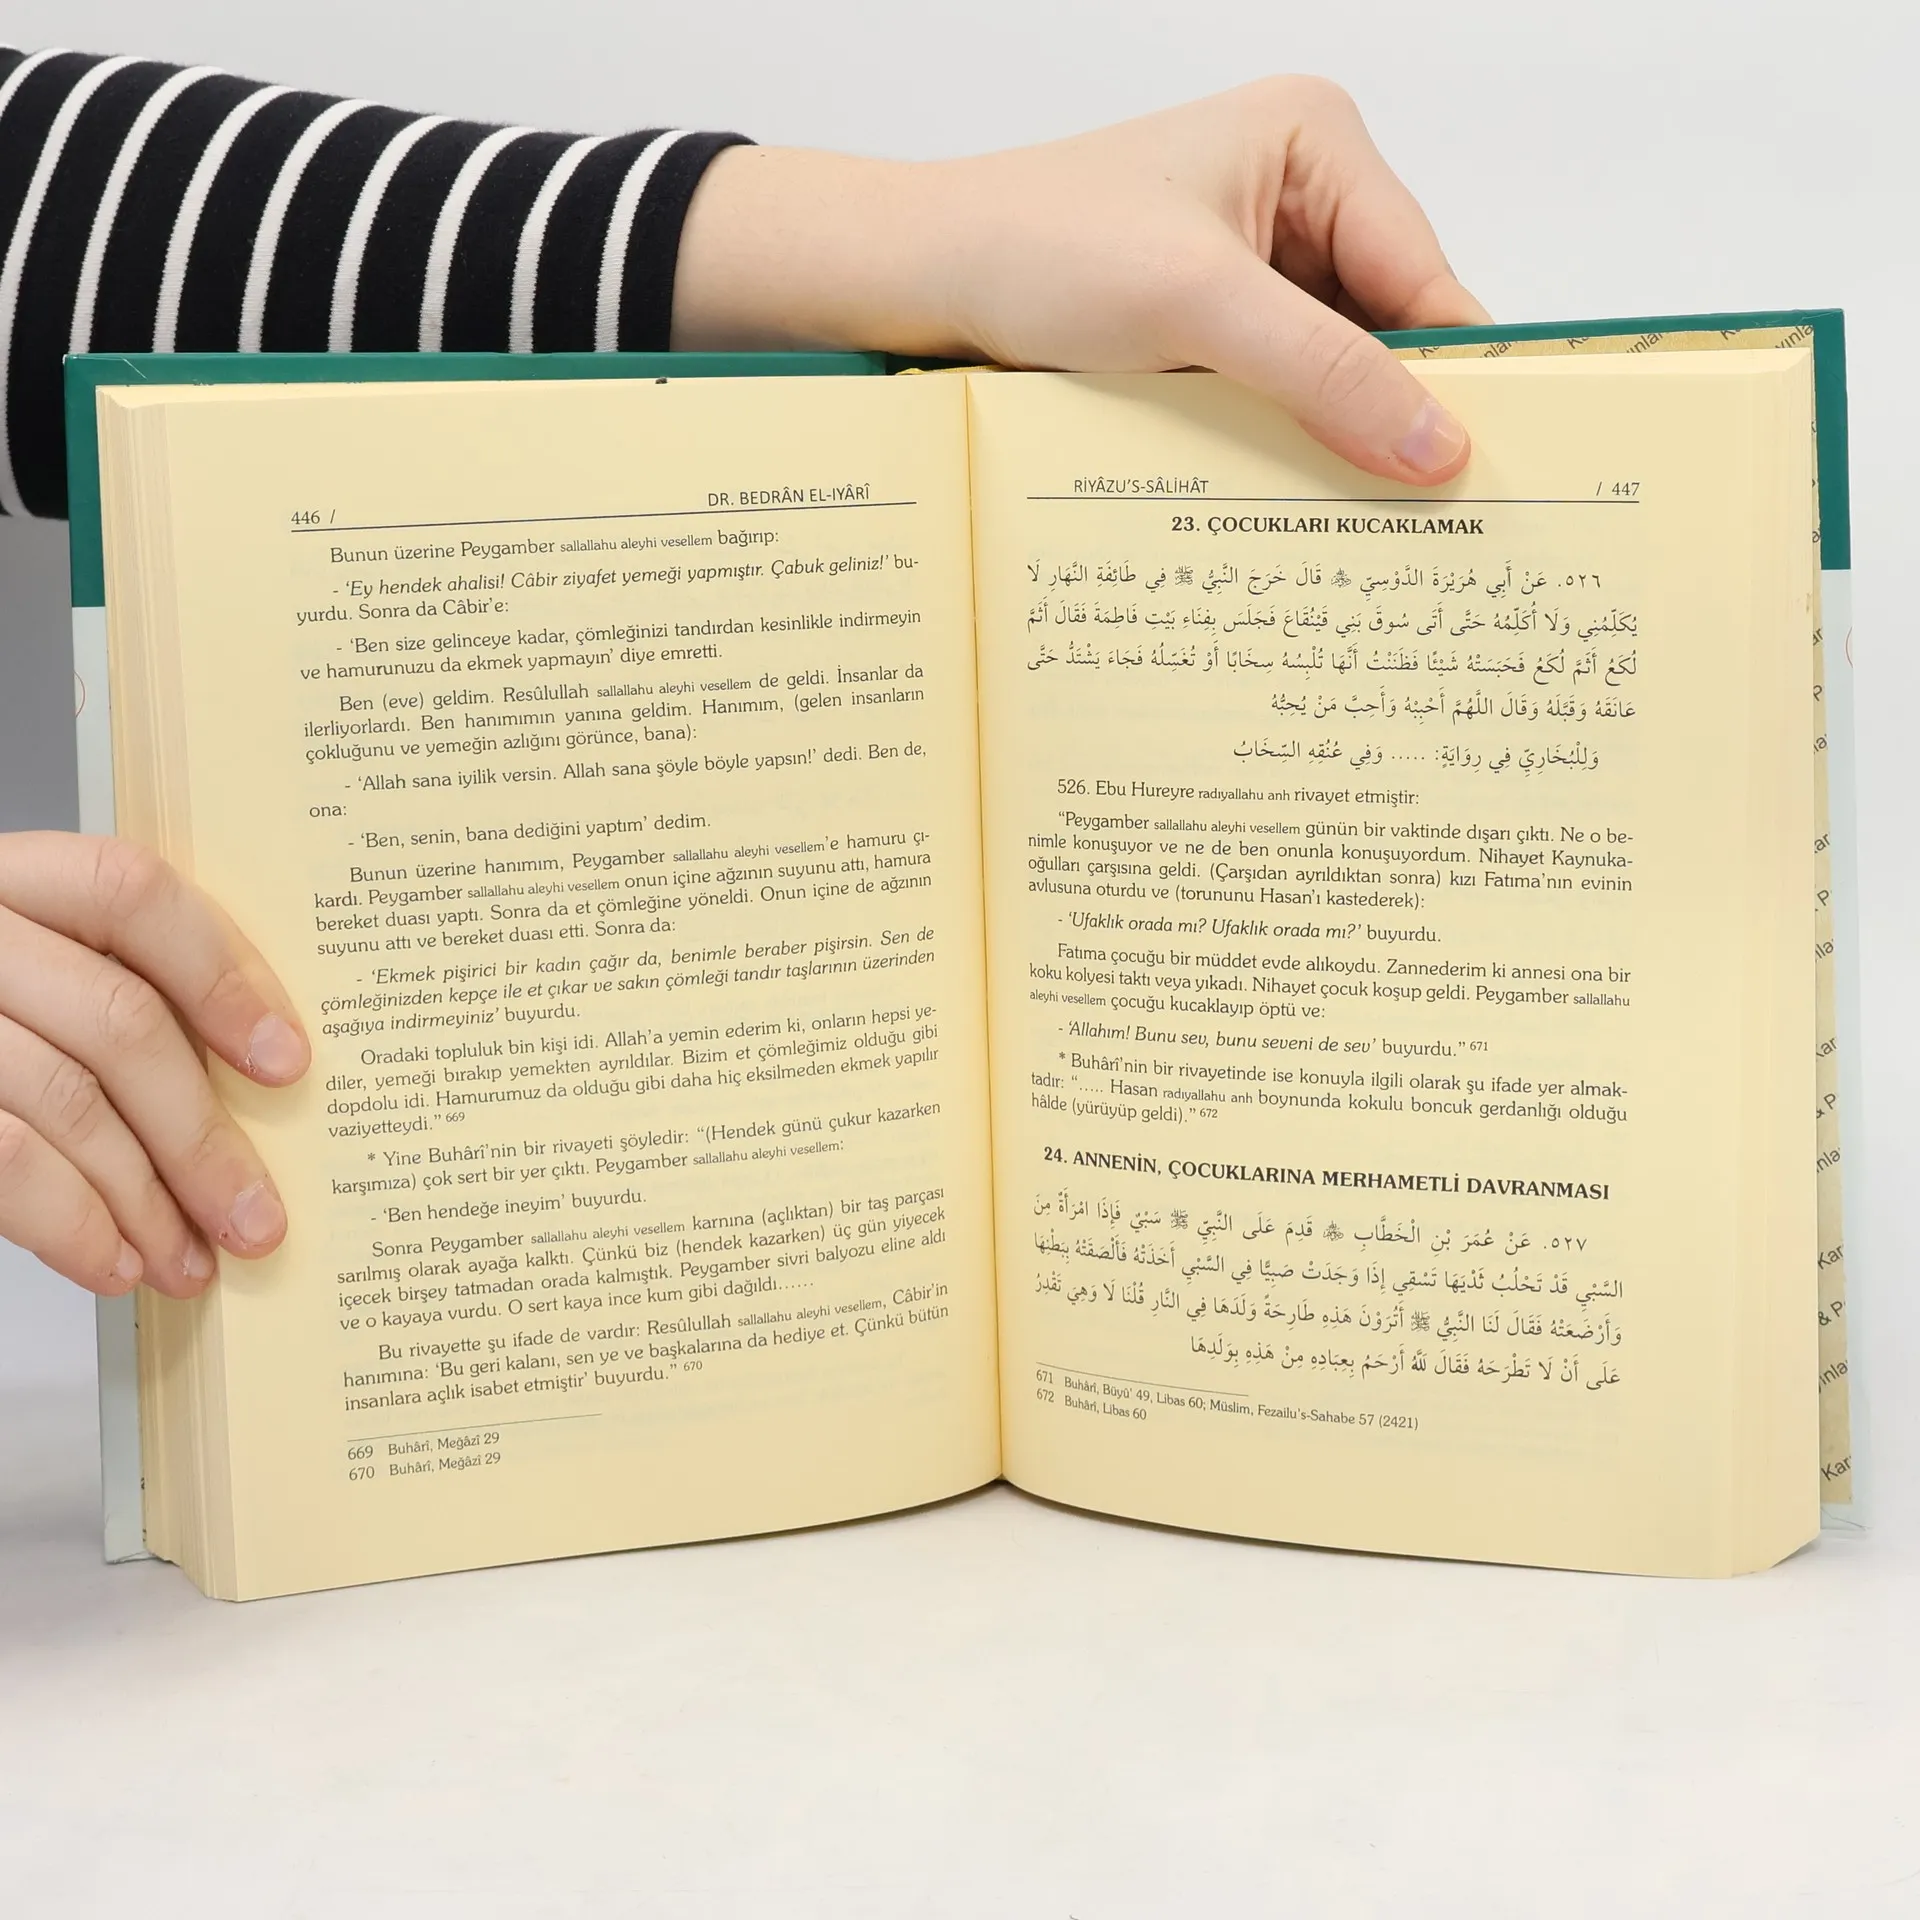 446 /
DR. BEDRÂN EL-IYÂRÎ
Bunun üzerine Peygamber sallallahu aleyhi vesellem bağırıp:
- ‘Ey hendek ahalisi! Câbir ziyafet yemeği yapmıştır. Çabuk geliniz!’ bu-
yurdu. Sonra da Câbir’e:
- ‘Ben size gelinceye kadar, çömleğinizi tandırdan kesinlikle indirmeyin
ve hamurunuzu da ekmek yapmayın’ diye emretti.
Ben (eve) geldim. Resûlullah sallallahu aleyhi vesellem de geldi. İnsanlar da
ilerliyorlardı. Ben hanımımın yanına geldim. Hanımım, (gelen insanların
çokluğunu ve yemeğin azlığını görünce, bana):
- ‘Allah sana iyilik versin. Allah sana şöyle böyle yapsın!’ dedi. Ben de,
ona:
- ‘Ben, senin, bana dediğini yaptım’ dedim.
Bunun üzerine hanımım, Peygamber sallallahu aleyhi vesellem’e hamuru çı-
kardı. Peygamber sallallahu aleyhi vesellem onun içine ağzının suyunu attı, hamura
bereket duası yaptı. Sonra da et çömleğine yöneldi. Onun içine de ağzının
suyunu attı ve bereket duası etti. Sonra da:
- ‘Ekmek pişirici bir kadın çağır da, benimle beraber pişirsin. Sen de
çömleğinizden kepçe ile et çıkar ve sakın çömleği tandır taşlarının üzerinden
aşağıya indirmeyiniz’ buyurdu.
Oradaki topluluk bin kişi idi. Allah’a yemin ederim ki, onların hepsi ye-
diler, yemeği bırakıp yemekten ayrıldılar. Bizim et çömleğimiz olduğu gibi
dopdolu idi. Hamurumuz da olduğu gibi daha hiç eksilmeden ekmek yapılır
vaziyetteydi.” 669
* Yine Buhârî’nin bir rivayeti şöyledir: “(Hendek günü çukur kazarken
karşımıza) çok sert bir yer çıktı. Peygamber sallallahu aleyhi vesellem:
- ‘Ben hendeğe ineyim’ buyurdu.
Sonra Peygamber sallallahu aleyhi vesellem karnına (açlıktan) bir taş parçası
sarılmış olarak ayağa kalktı. Çünkü biz (hendek kazarken) üç gün yiyecek
içecek birşey tatmadan orada kalmıştık. Peygamber sivri balyozu eline aldı
ve o kayaya vurdu. O sert kaya ince kum gibi dağıldı......
Bu rivayette şu ifade de vardır: Resûlullah sallallahu aleyhi vesellem, Câbir’in
hanımına: ‘Bu geri kalanı, sen ye ve başkalarına da hediye et. Çünkü bütün
insanlara açlık isabet etmiştir’ buyurdu.” 670
669 Buhârî, Meğâzî 29
670 Buhârî, Meğâzî 29
RİYÂZU’S-SÂLİHÂT
/ 447
23. ÇOCUKLARI KUCAKLAMAK
٥٢٦. عَنْ أَبِي هُرَيْرَةَ الدَّوْسِيِّ ﷺ قَالَ خَرَجَ النَّبِيُّ ﷺ فِي طَائِفَةِ النَّهَارِ لَا
يُكَلِّمُنِي وَلَا أُكَلِّمُهُ حَتَّى أَتَى سُوقَ بَنِي قَيْنُقَاعَ فَجَلَسَ بِفِنَاءِ بَيْتِ فَاطِمَةَ فَقَالَ أَثَمَّ
لُكَعُ أَثَمَّ لُكَعُ فَحَبَسَتْهُ شَيْئًا فَظَنَنْتُ أَنَّهَا تُلْبِسُهُ سِخَابًا أَوْ تُغَسِّلُهُ فَجَاءَ يَشْتَدُّ حَتَّى
عَانَقَهُ وَقَبَّلَهُ وَقَالَ اللَّهُمَّ أَحْبِبْهُ وَأَحِبَّ مَنْ يُحِبُّهُ
وَلِلْبُخَارِيِّ فِي رِوَايَةٍ: ..... وَفِي عُنُقِهِ السِّخَابُ
526. Ebu Hureyre radıyallahu anh rivayet etmiştir:
“Peygamber sallallahu aleyhi vesellem günün bir vaktinde dışarı çıktı. Ne o be-
nimle konuşuyor ve ne de ben onunla konuşuyordum. Nihayet Kaynuka-
oğulları çarşısına geldi. (Çarşıdan ayrıldıktan sonra) kızı Fatıma’nın evinin
avlusuna oturdu ve (torununu Hasan’ı kastederek):
- ‘Ufaklık orada mı? Ufaklık orada mı?’ buyurdu.
Fatıma çocuğu bir müddet evde alıkoydu. Zannederim ki annesi ona bir
koku kolyesi taktı veya yıkadı. Nihayet çocuk koşup geldi. Peygamber sallallahu
aleyhi vesellem çocuğu kucaklayıp öptü ve:
- ‘Allahım! Bunu sev, bunu seveni de sev’ buyurdu.” 671
* Buhârî’nin bir rivayetinde ise konuyla ilgili olarak şu ifade yer almak-
tadır: “..... Hasan radıyallahu anh boynunda kokulu boncuk gerdanlığı olduğu
hâlde (yürüyüp geldi).” 672
24. ANNENİN, ÇOCUKLARINA MERHAMETLİ DAVRANMASI
٥٢٧. عَنْ عُمَرَ بْنِ الْخَطَّابِ قَدِمَ عَلَى النَّبِيِّ ﷺ سَبْيٌ فَإِذَا امْرَأَةٌ مِنَ
السَّبْيِ قَدْ تَحْلُبُ ثَدْيَهَا تَسْقِي إِذَا وَجَدَتْ صَبِيًّا فِي السَّبْيِ أَخَذَتْهُ فَأَلْصَقَتْهُ بِبَطْنِهَا
وَأَرْضَعَتْهُ فَقَالَ لَنَا النَّبِيُّ ﷺ أَتُرَوْنَ هَذِهِ طَارِحَةً وَلَدَهَا فِي النَّارِ قُلْنَا لَا وَهِيَ تَقْدِرُ
عَلَى أَنْ لَا تَطْرَحَهُ فَقَالَ لَلَّهُ أَرْحَمُ بِعِبَادِهِ مِنْ هَذِهِ بِوَلَدِهَا
671 Buhârî, Büyû’ 49, Libas 60; Müslim, Fezailu’s-Sahabe 57 (2421)
672 Buhârî, Libas 60